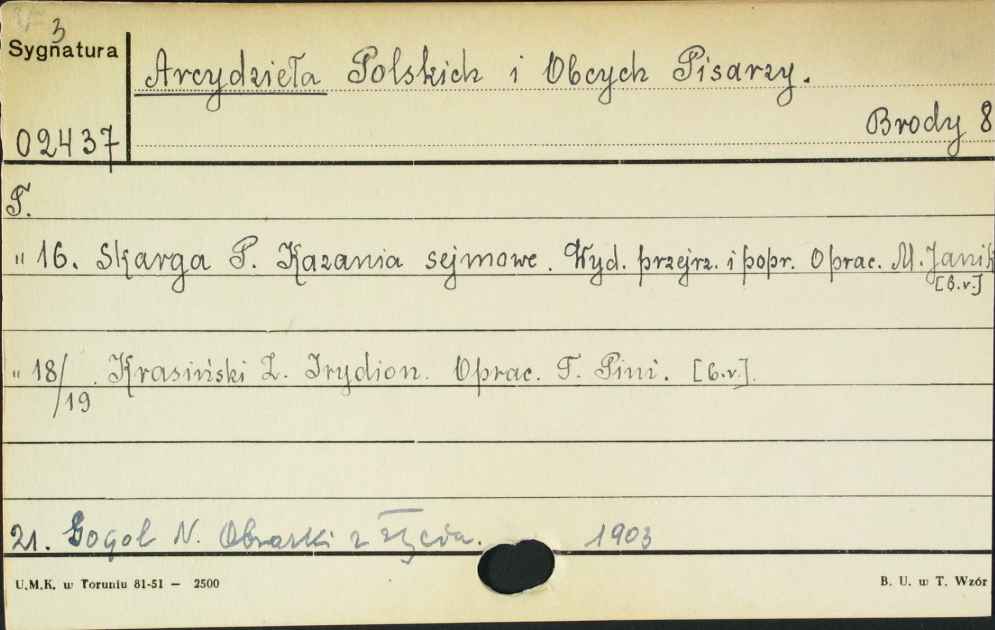 3
Sygnatura
Arcydzieła Polskich i Obcych Pisarzy.
02437
Brody 8
T.
" 16. Skarga P. Kazania sejmowe. Wyd. przejrz. i popr. Oprac. M. Janik
[b.r.]
" 18/19. Krasiński Z. Irydion. Oprac. T. Pini. [b.r.].
21. Gogol N. Obrazki z życia. 1903
U.M.K. w Toruniu 81-51 — 2500
B. U. w T. Wzór